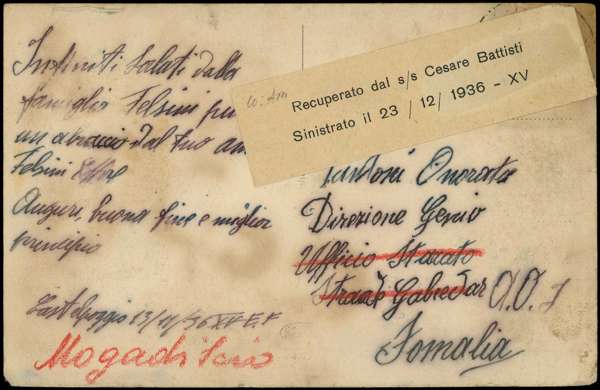 Infiniti Saluti dalla
famiglia Felsini
un abraccio dal tuo
Felsini Ettore
Auguri, buona fine e miglior
principio
13/11/36 XV E.F
Mogadiscio
Recuperato dal s/s Cesare Battisti
Sinistrato il 23 / 12/ 1936 - XV
Onorato
Direzione Genio
Ufficio Staccato
Gabredar A.O.I
Somalia